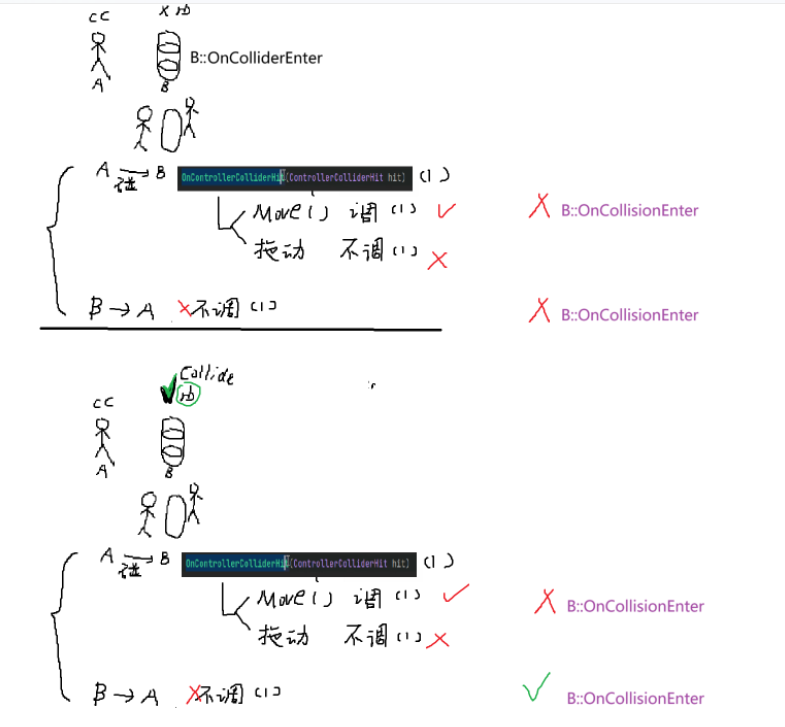 CC × rb
B::OnColliderEnter
A B
A → B OnControllerColliderHit(ControllerColliderHit hit) (1)
碰
Move() 调(1) ✓ X B::OnCollisionEnter
拖动 不调(1) ×
B → A ×不调(1) X B::OnCollisionEnter
✓ Collide
rb
CC
A B
A → B OnControllerColliderHit(ControllerColliderHit hit) (1)
碰
Move() 调(1) ✓ X B::OnCollisionEnter
拖动 不调(1) ×
B → A ×不调(1) ✓ B::OnCollisionEnter